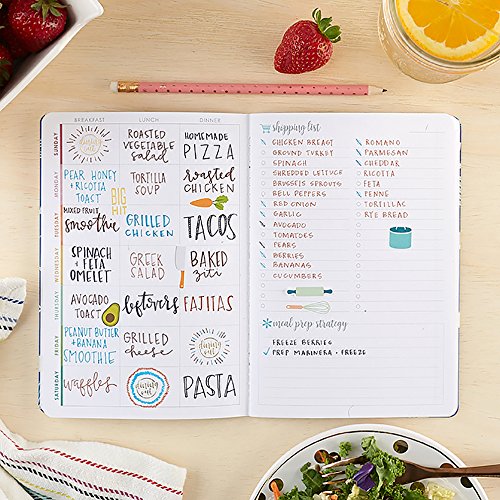 BREAKFAST LUNCH DINNER
SUNDAY
dining out
ROASTED
VEGETABLE
salad
HOMEMADE
PIZZA
MONDAY
PEAR HONEY
+ RICOTTA
TOAST
TORTILLA
SOUP
roasted
CHICKEN
TUESDAY
MIXED FRUIT
smoothie
BIG
HIT
GRILLED
CHICKEN
TACOS
WEDNESDAY
SPINACH
+ FETA
OMELET
GREEK
SALAD
BAKED
ziti
THURSDAY
AVOCADO
TOAST
leftovers
FAJITAS
FRIDAY
PEANUT BUTTER
+ BANANA
SMOOTHIE
GRILLED
cheese
dining out
SATURDAY
waffles
dining out
PASTA
shopping list
CHICKEN BREAST
GROUND TURKEY
SPINACH
SHREDDED LETTUCE
BRUSSELS SPROUTS
BELL PEPPERS
RED ONION
GARLIC
AVOCADO
TOMATOES
PEARS
BERRIES
BANANAS
CUCUMBERS
ROMANO
PARMESAN
CHEDDAR
RICOTTA
FETA
PENNE
TORTILLAS
RYE BREAD
meal prep strategy
FREEZE BERRIES
PREP MARINERA + FREEZE